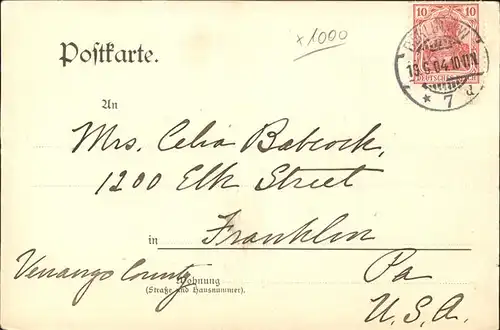 x1000
10 10
19.6.04.10-11V
DEUTSCHES
* 7 d
Postkarte.
An
Mrs. Celia Babcock,
1200 Elk Street
in Franklin
Venango County Pa
Wohnung
(Straße und Hausnummer).
U.S.A.